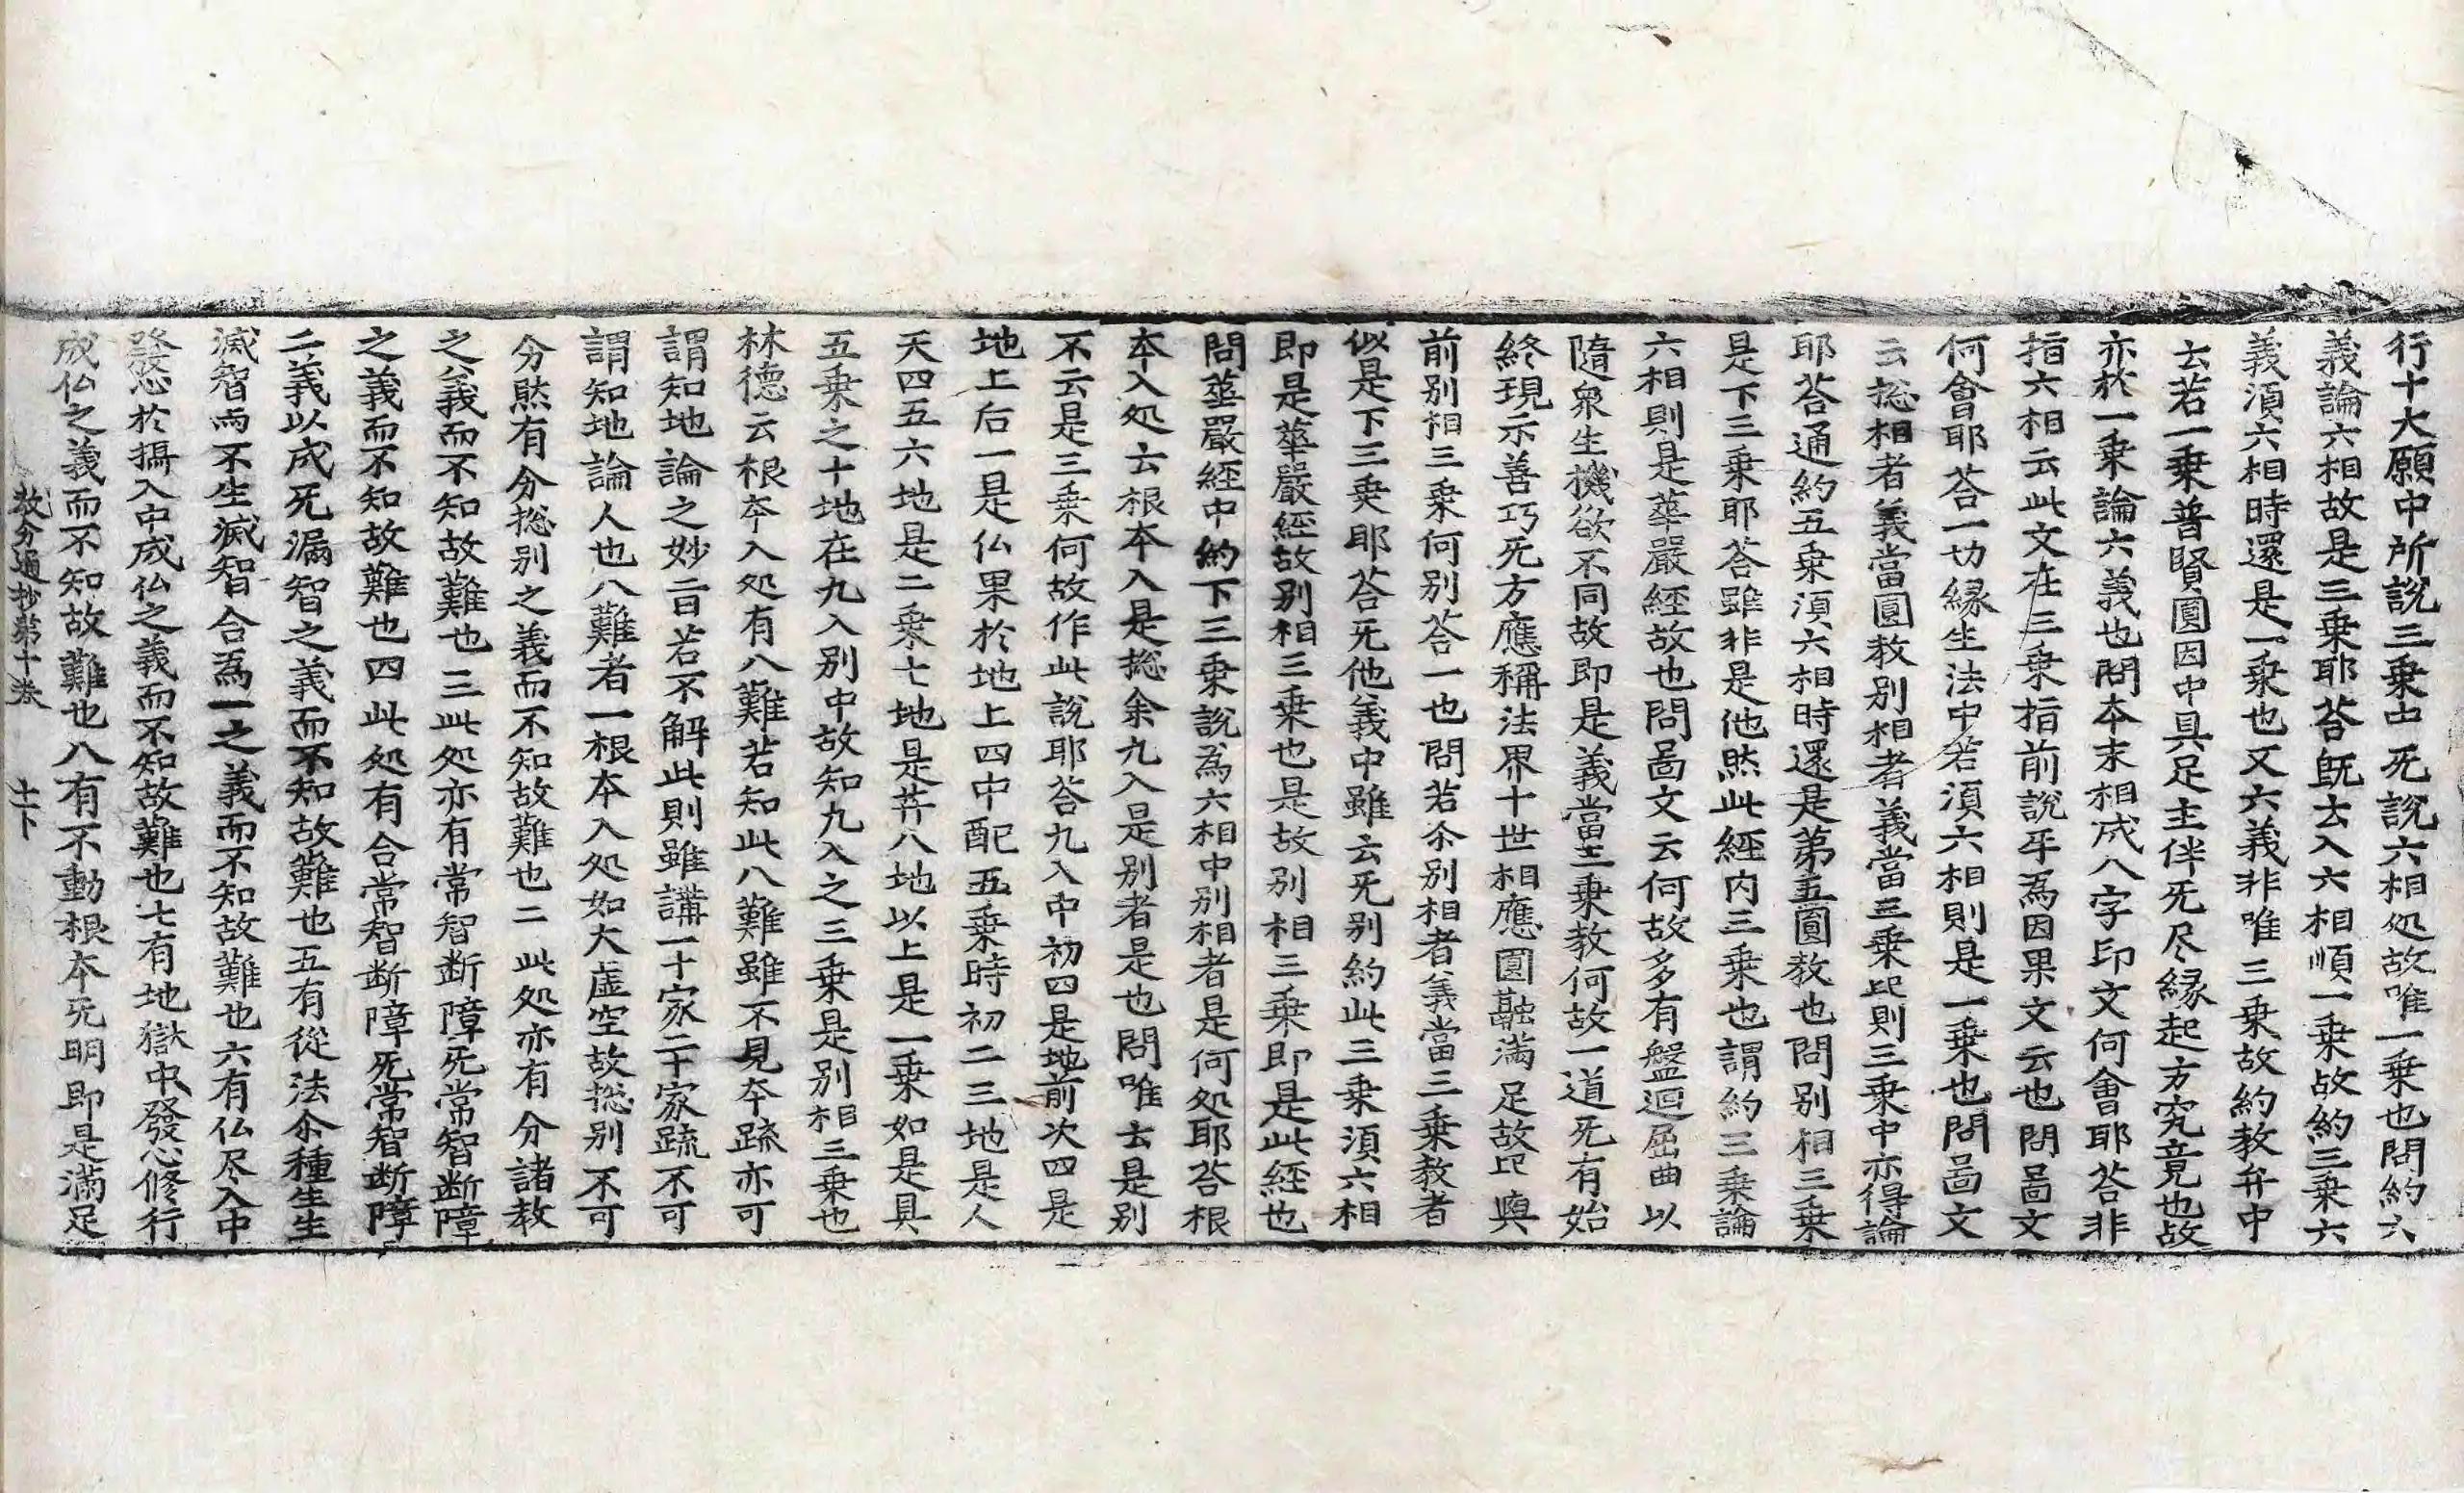 行十大願中所說三乗中旡說六相処故唯一乗也問約六
義論六相故是三乗耶荅旣去入六相順一乗故約三乗六
義湏六相時還是一乗也又六義非唯三乗故約教弁中
云若一乗普賢圓因中具足主伴旡尽縁起方究竟也故
亦於一乗論六義也問本末相成八字印文何會耶荅非
指六相云此文在三乗指前說乎為因果文云也問啚文
何會耶荅一切縁生法中若湏六相則是一乗也問啚文
云揔相者義當圓教別相者義當三乗此則三乗中亦得論
耶荅通約五乗湏六相時還是第五圓教也問別相三乗
是下三乗耶荅雖非是他㸃此經內三乗也謂約三乗論
六相則是華嚴經故也問啚文云何故多有盤迴屈曲以
隨衆生機欲不同故即是義當三乗教何故一道旡有始
終現示善巧旡方應稱法界十世相應圓融満足故此與
前別相三乗何別荅一也問若尒別相者義當三乗教者
似是下三乗耶荅旡他義中雖云旡別約此三乗湏六相
即是華嚴經故別相三乗也是故別相三乗即是此經也
問華嚴經中約下三乗說為六相中別相者是何処耶荅根
本入処云根本入是揔余九入是別者是也問唯云是別
不云是三乗何故作此說耶荅九入中初四是地前次四是
地上后一是仏果於地上四中配五乗時初二三地是人
天四五六地是二乗七地是菩八地以上是一乗如是具
五乗之十地在九入別中故知九入之三乗是別相三乗也
林德云根本入処有八難若知此八難雖不見本䟽亦可
謂知地論之妙㫖若不解此則雖講一十家二十家䟽不可
謂知地論人也八難者一根本入処如大虛空故揔別不可
分㸃有分揔別之義而不知故難也二此処亦有分諸教
之義而不知故難也三此処亦有常智断障旡常智断障
之義而不知故難也四此処有合常智断障旡常智断障
二義以成旡漏智之義而不知故難也五有從法尒種生生
滅智而不生滅智合為一之義而不知故難也六有仏尽入中
發心於攝入中成仏之義而不知故難也七有地獄中發心修行
成仏之義而不知故難也八有不動根本旡明即是満足
教分通抄第十卷 十下